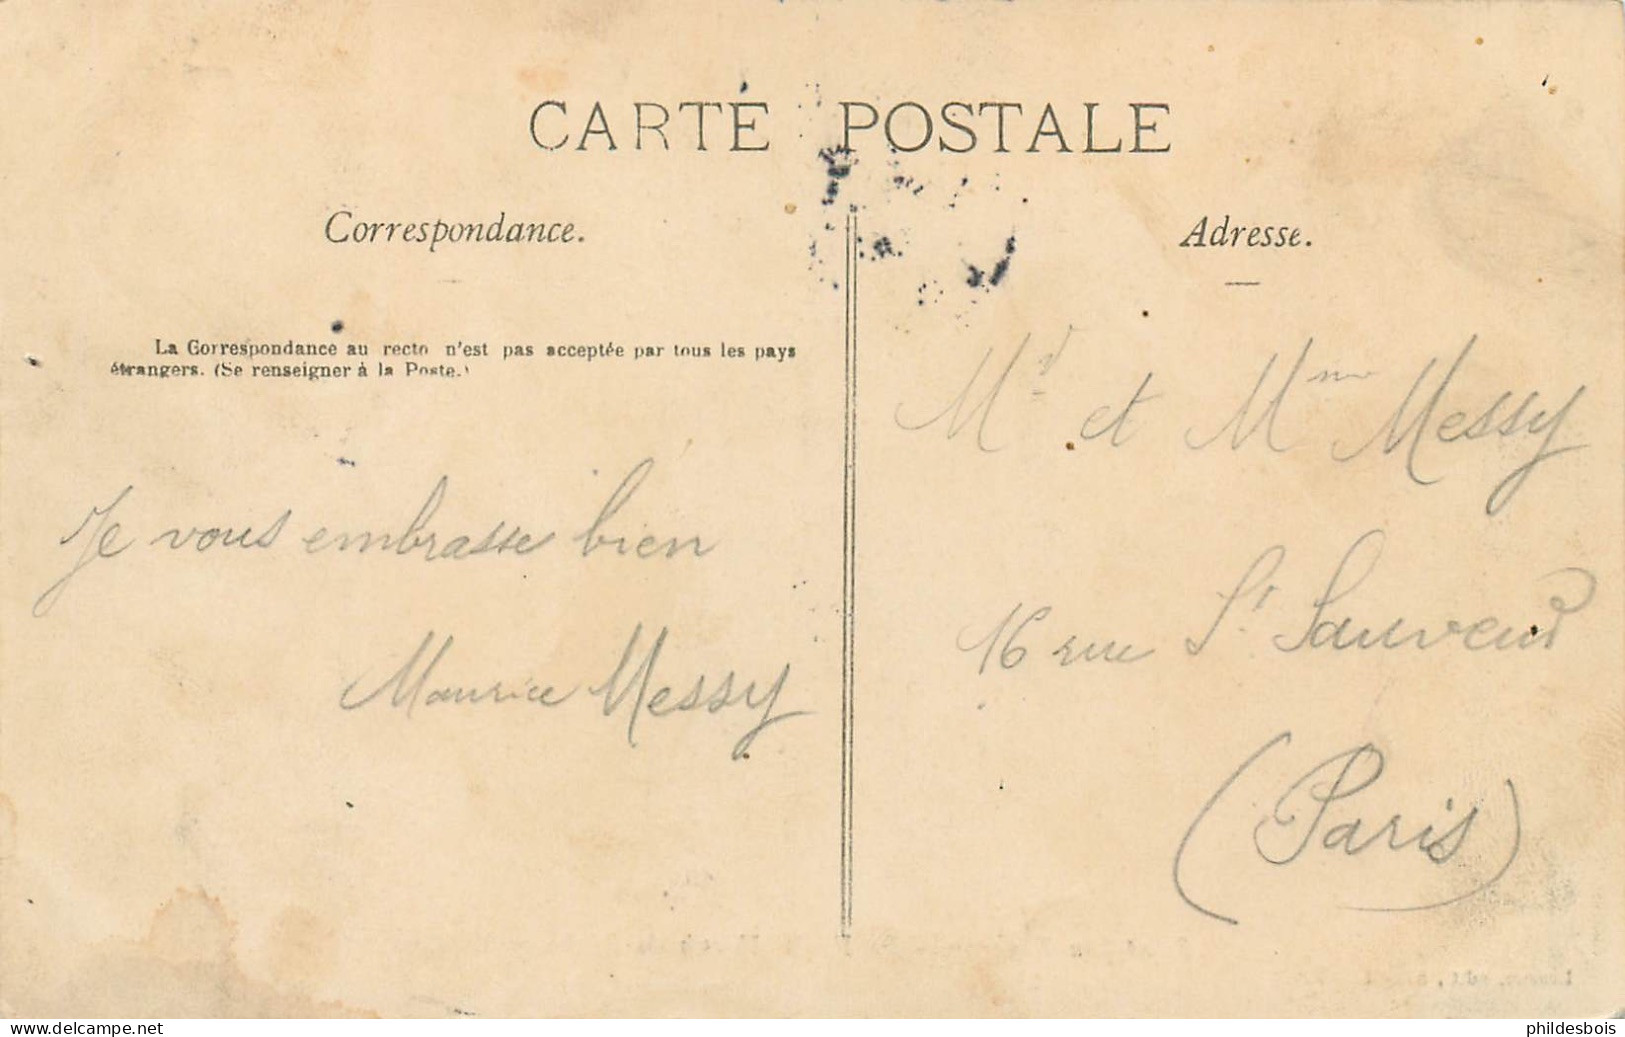 CARTE POSTALE
Correspondance.
La Correspondance au recto n'est pas acceptée par tous les pays
étrangers. (Se renseigner à la Poste.)
Je vous embrasse bien
Maurice Messy
Adresse.
Mr et Mme Messy
16 rue St Sauveur
(Paris)
www.delcampe.net
phildesbois